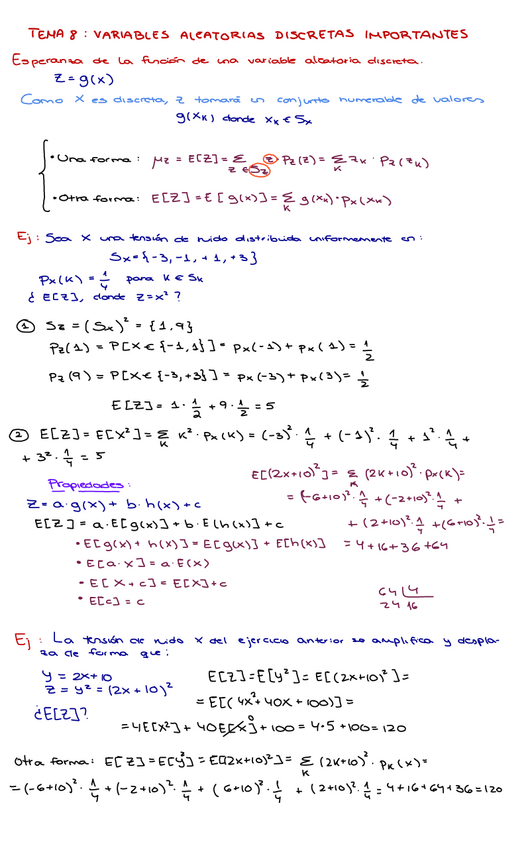 TEMA 8: VARIABLES ALEATORIAS DISCRETAS IMPORTANTES
Esperanza de la función de una variable aleatoria discreta.
Z = g(x)
Como X es discreta, z tomará un conjunto numerable de valores
g(x_K) donde x_K ∈ S_x
• Una forma: μ_z = E[Z] = Σ_{z ∈ S_z} z P_z(z) = Σ_K z_K · P_z(z_K)
• Otra forma: E[Z] = E[g(x)] = Σ_K g(x_K) · P_x(x_K)
Ej: Sea X una tensión de ruido distribuida uniformemente en:
S_x = {-3, -1, +1, +3}
P_x(K) = 1/4 para K ∈ S_K
¿E[Z], donde z = x²?
① S_z = (S_x)² = {1, 9}
P_z(1) = P[X ∈ {-1, 1}] = P_x(-1) + P_x(1) = 1/2
P_z(9) = P[X ∈ {-3, +3}] = P_x(-3) + P_x(3) = 1/2
E[Z] = 1 · 1/2 + 9 · 1/2 = 5
② E[Z] = E[X²] = Σ_K K² · P_x(K) = (-3)² · 1/4 + (-1)² · 1/4 + 1² · 1/4 +
+ 3² · 1/4 = 5
Propiedades:
Z = a·g(x) + b·h(x) + c
E[Z] = a·E[g(x)] + b·E(h(x)] + c
• E[g(x) + h(x)] = E[g(x)] + E[h(x)]
• E[a·x] = a·E(x)
• E[X + c] = E[X] + c
• E[c] = c
E[(2x+10)²] = Σ_K (2K+10)² · P_x(K) =
= (-6+10)² · 1/4 + (-2+10)² · 1/4 +
+ (2+10)² · 1/4 + (6+10)² · 1/4 =
= 4 + 16 + 36 + 64
64 | 4
24 16
Ej: La tensión de ruido X del ejercicio anterior se amplifica y despla-
za de forma que:
y = 2x + 10
z = y² = (2x + 10)²
¿E[Z]?
E[Z] = E[y²] = E[(2x+10)²] =
= E[(4x² + 40x + 100)] =
= 4E[x²] + 40E[x] 0 + 100 = 4·5 + 100 = 120
Otra forma: E[Z] = E[y²] = E[(2x+10)²] = Σ_K (2K+10)² · P_K(x) =
= (-6+10)² · 1/4 + (-2+10)² · 1/4 + (6+10)² · 1/4 + (2+10)² · 1/4 = 4 + 16 + 64 + 36 = 120